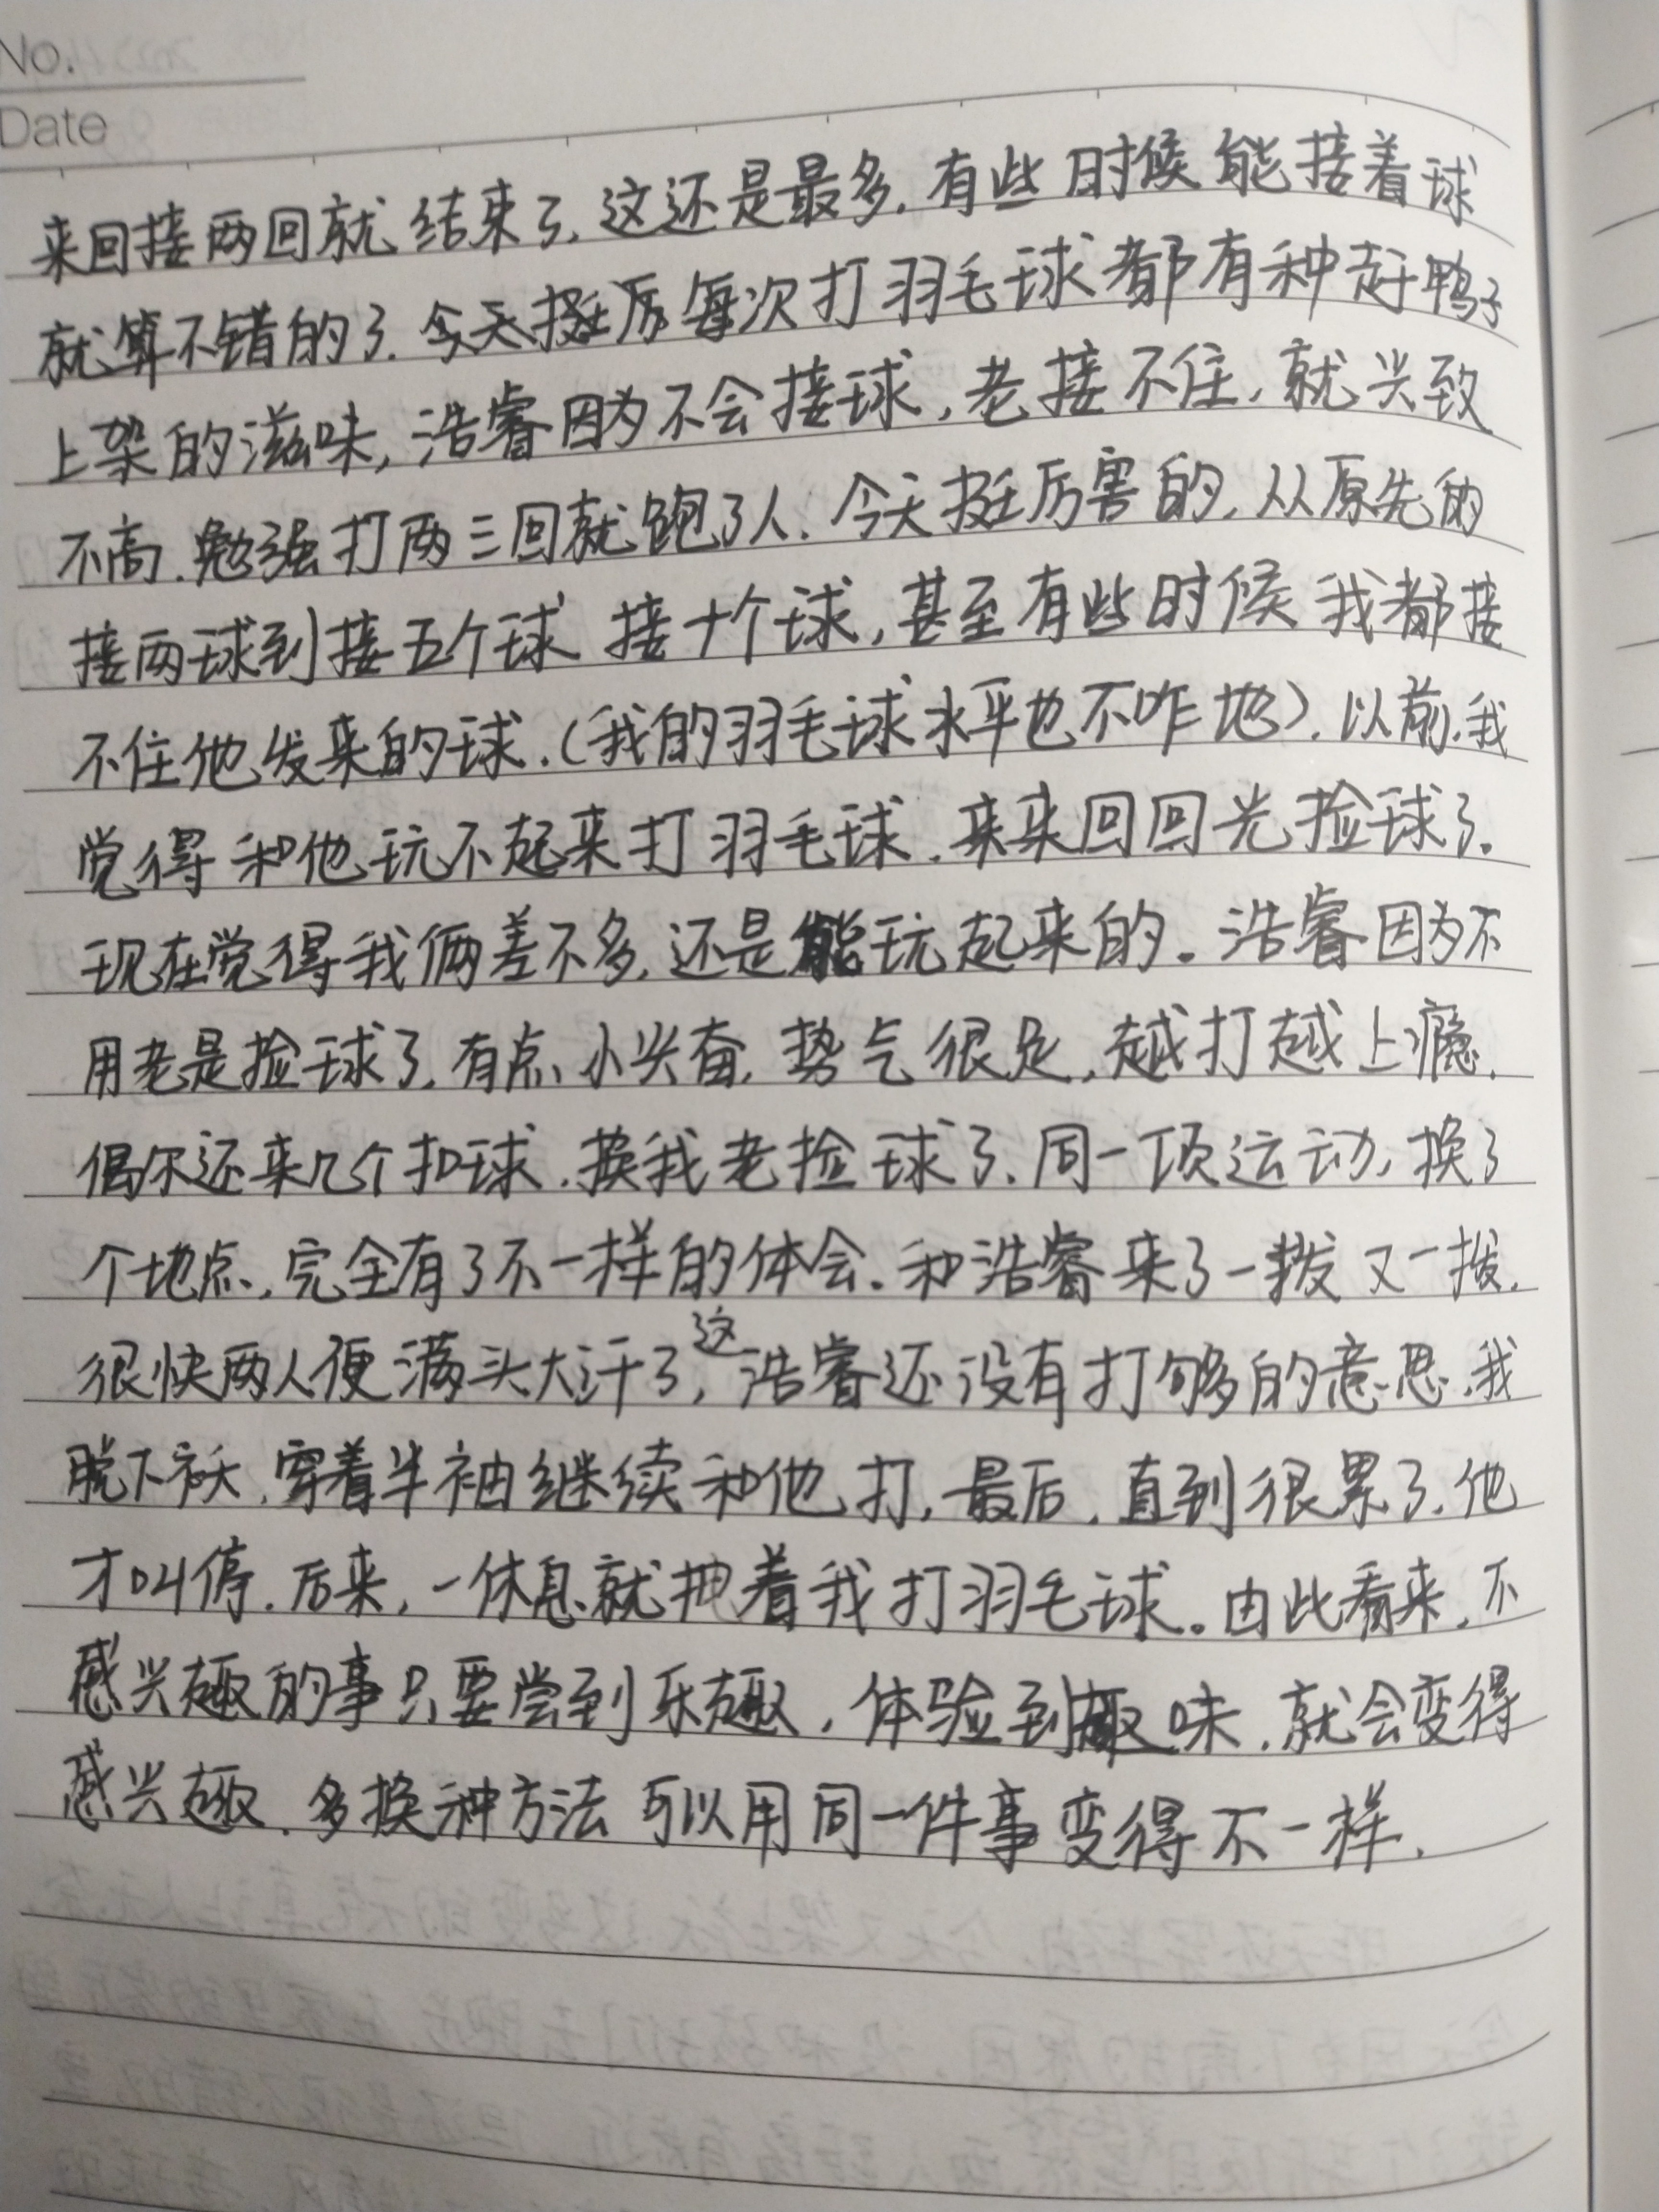 No.
Date
来回接两回就结束了,这还是最多.有些时候能接着球
就算不错的了.今天挺厉每次打羽毛球都有种赶鸭子
上架的滋味,浩睿因为不会接球,老接不住,就兴致
不高.勉强打两三回就跑了人.今天挺厉害的,从原先的
接两球到接五个球 接十个球,甚至有些时候我都接
不住他发来的球.(我的羽毛球水平也不咋地).以前,我
觉得和他玩不起来打羽毛球.来来回回光捡球了.
现在觉得我俩差不多,还是能玩起来的。浩睿因为不
用老是捡球了,有点小兴奋,势气很足,越打越上瘾.
偶尔还来几个扣球.换我老捡球了.同一项运动,换了
个地点,完全有了不一样的体会.和浩睿来了一拨又一拨.
很快两人便满头大汗了,这浩睿还没有打够的意思.我
脱下袄,穿着半袖继续和他打,最后,直到很累了.他
才叫停.后来,一休息就拽着我打羽毛球。由此看来,不
感兴趣的事只要尝到乐趣,体验到趣味.就会变得
感兴趣.多换种方法 可以用同一件事变得不一样.